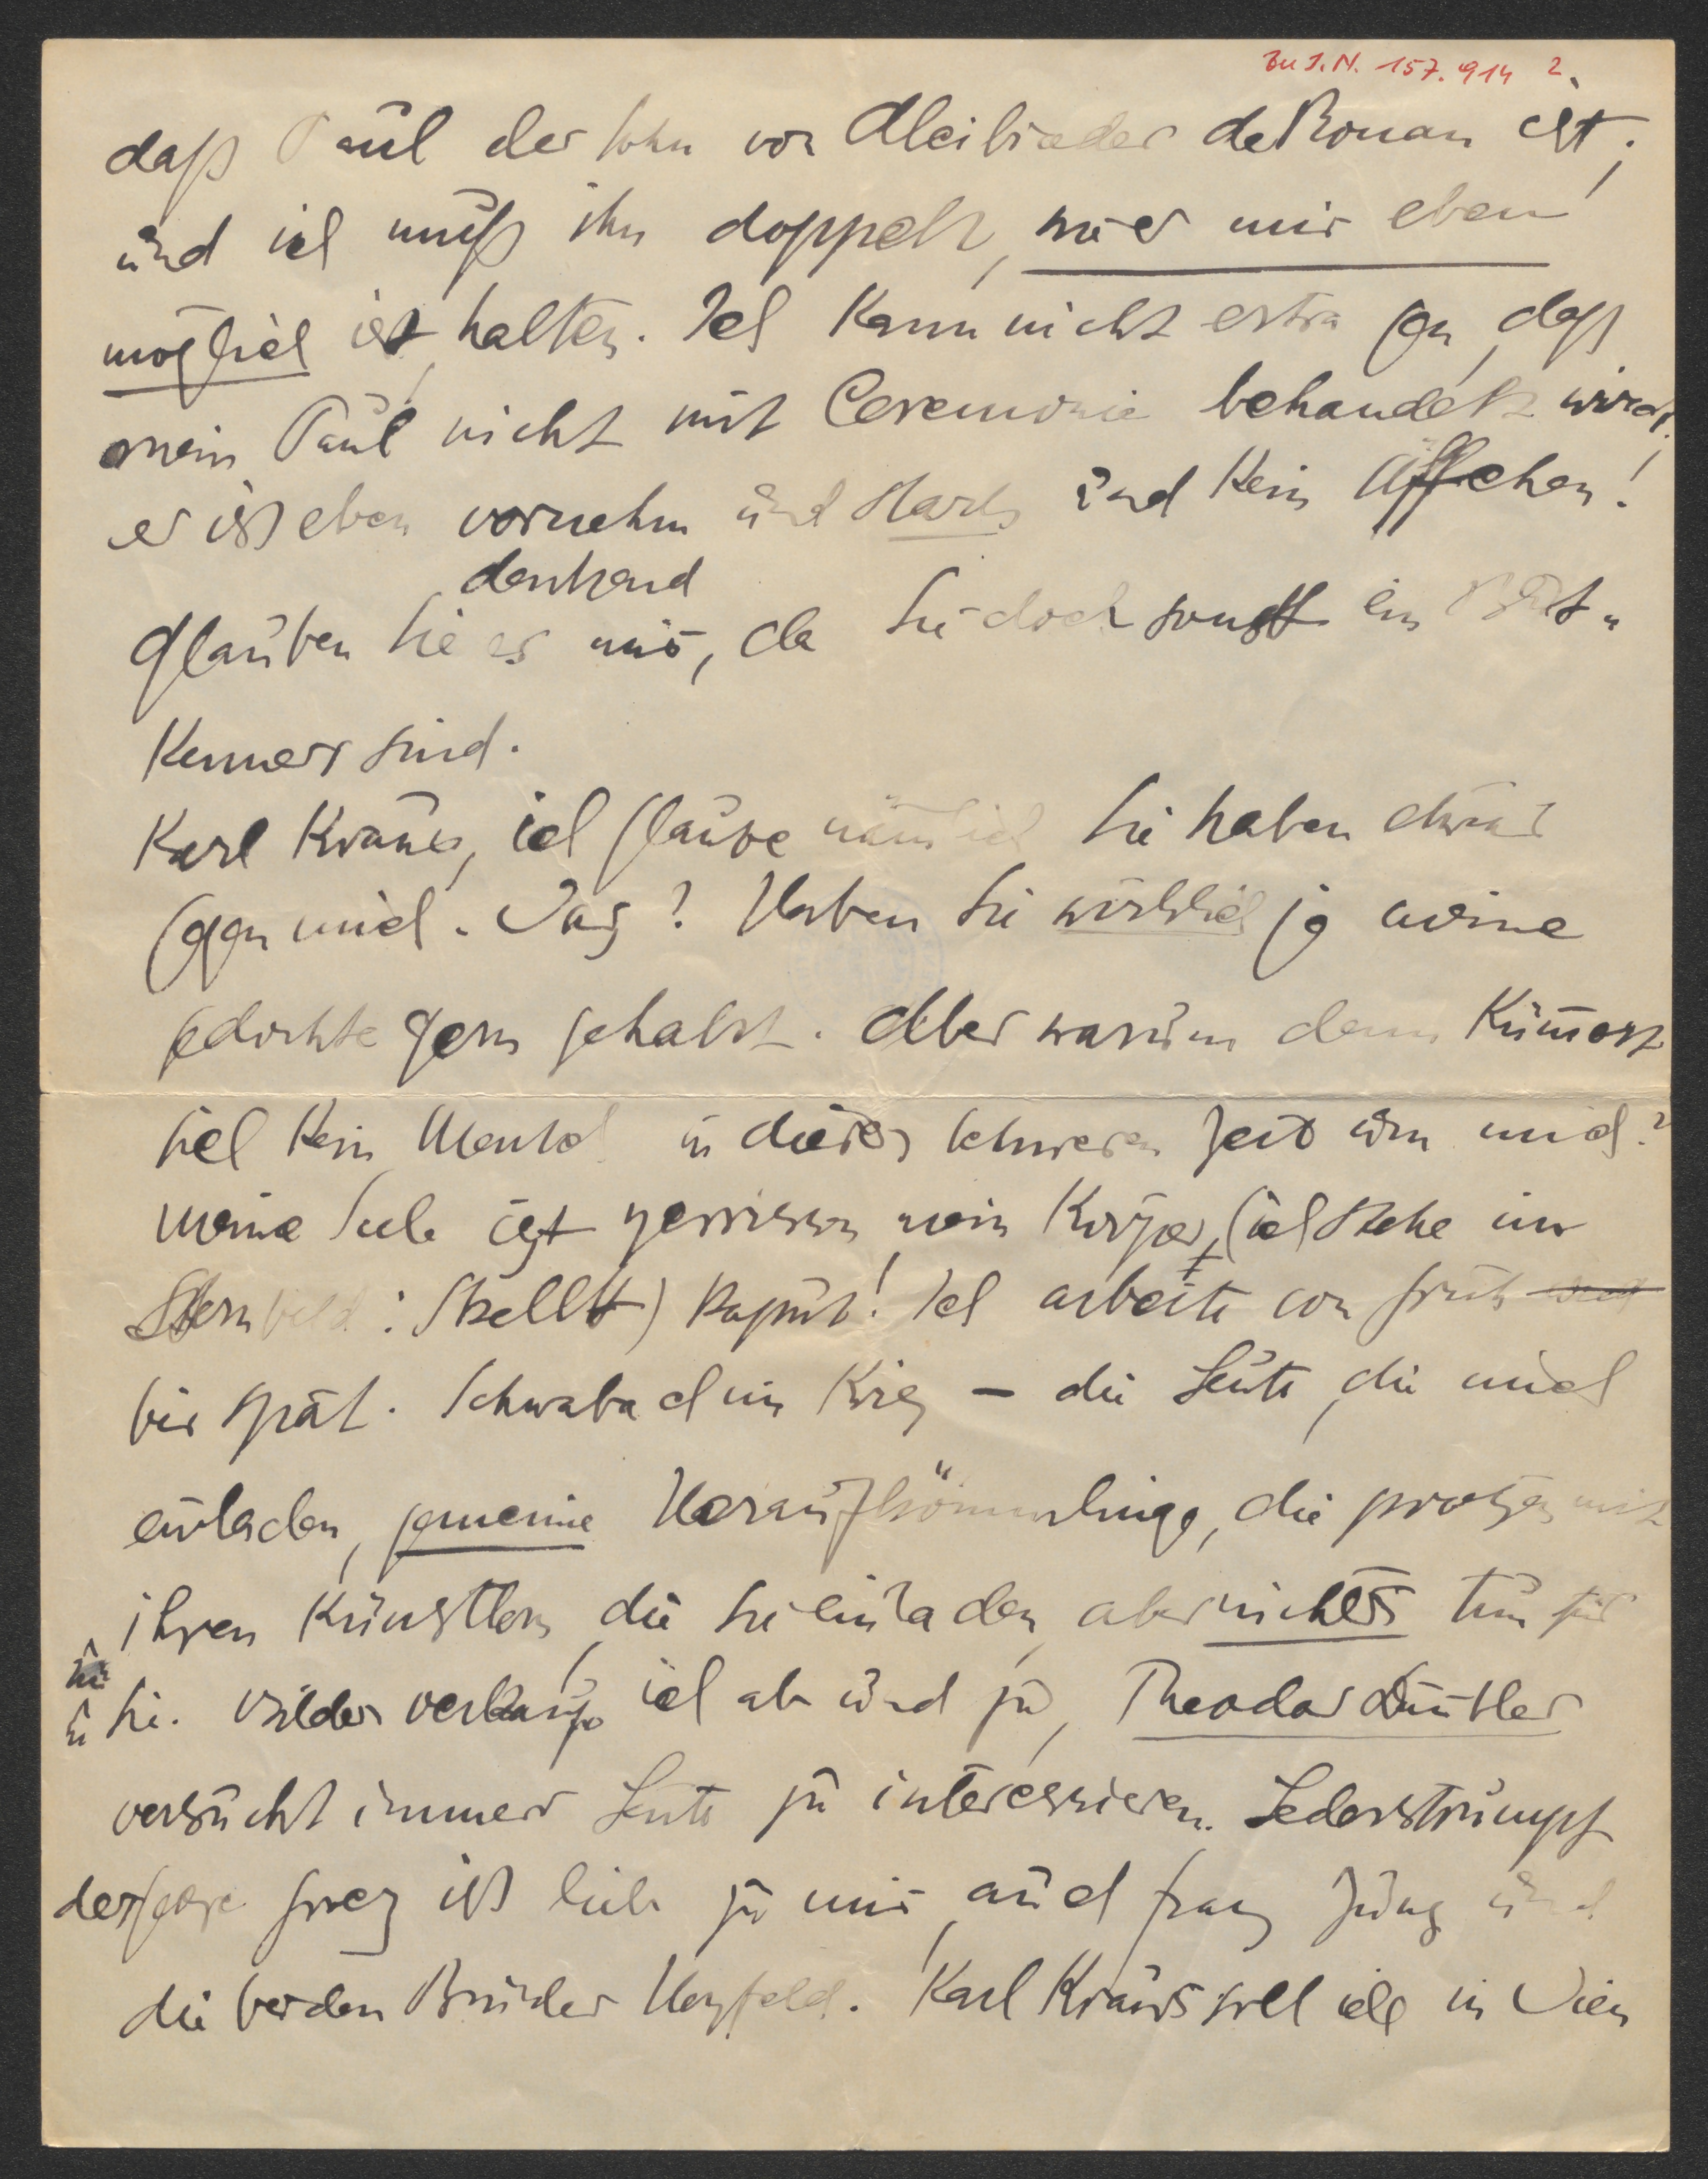 Zu I.N. 157.914 2.
daß Paul der Sohn von Alcibiades de Rouan ist;
und ich muß ihn doppelt, wie es mir eben
möglich ist, halten. Ich kann nicht extra sagen, daß
mein Paul nicht mit Ceremonie behandelt wird;
er ist eben vornehm und stark und kein Äffchen!
denkend
Glauben Sie es mir, da Sie doch sonst ein
Kenner sind.
Karl Kraus, ich glaube nämlich Sie haben etwas
gegen mich. Was? Haben Sie wirklich je meine
Gedichte gern gehabt. Aber warum denn kümert
sich kein Mensch in dieser schweren Zeit um mich?
Meine Seele ist zerrissen, mein Körper, (ich stehe im
Sternbild: Skellt) kaput! Ich arbeite von früh
bis spät. Schwabach im Krieg – die Leute, die mich
einladen, gemeine Heraufkömmlinge, die protzen mit
ihren Künstlern, die sie einladen, aber nichts tun für
sie. Bilder verkaufe ich ab und zu, Theodor Däubler
versucht immer Leute zu interessieren. Lederstrumpf
der George Grosz ist lieb zu mir, auch Franz Jung und
die beiden Brüder Herzfeld. Karl Kraus soll ich in Wien